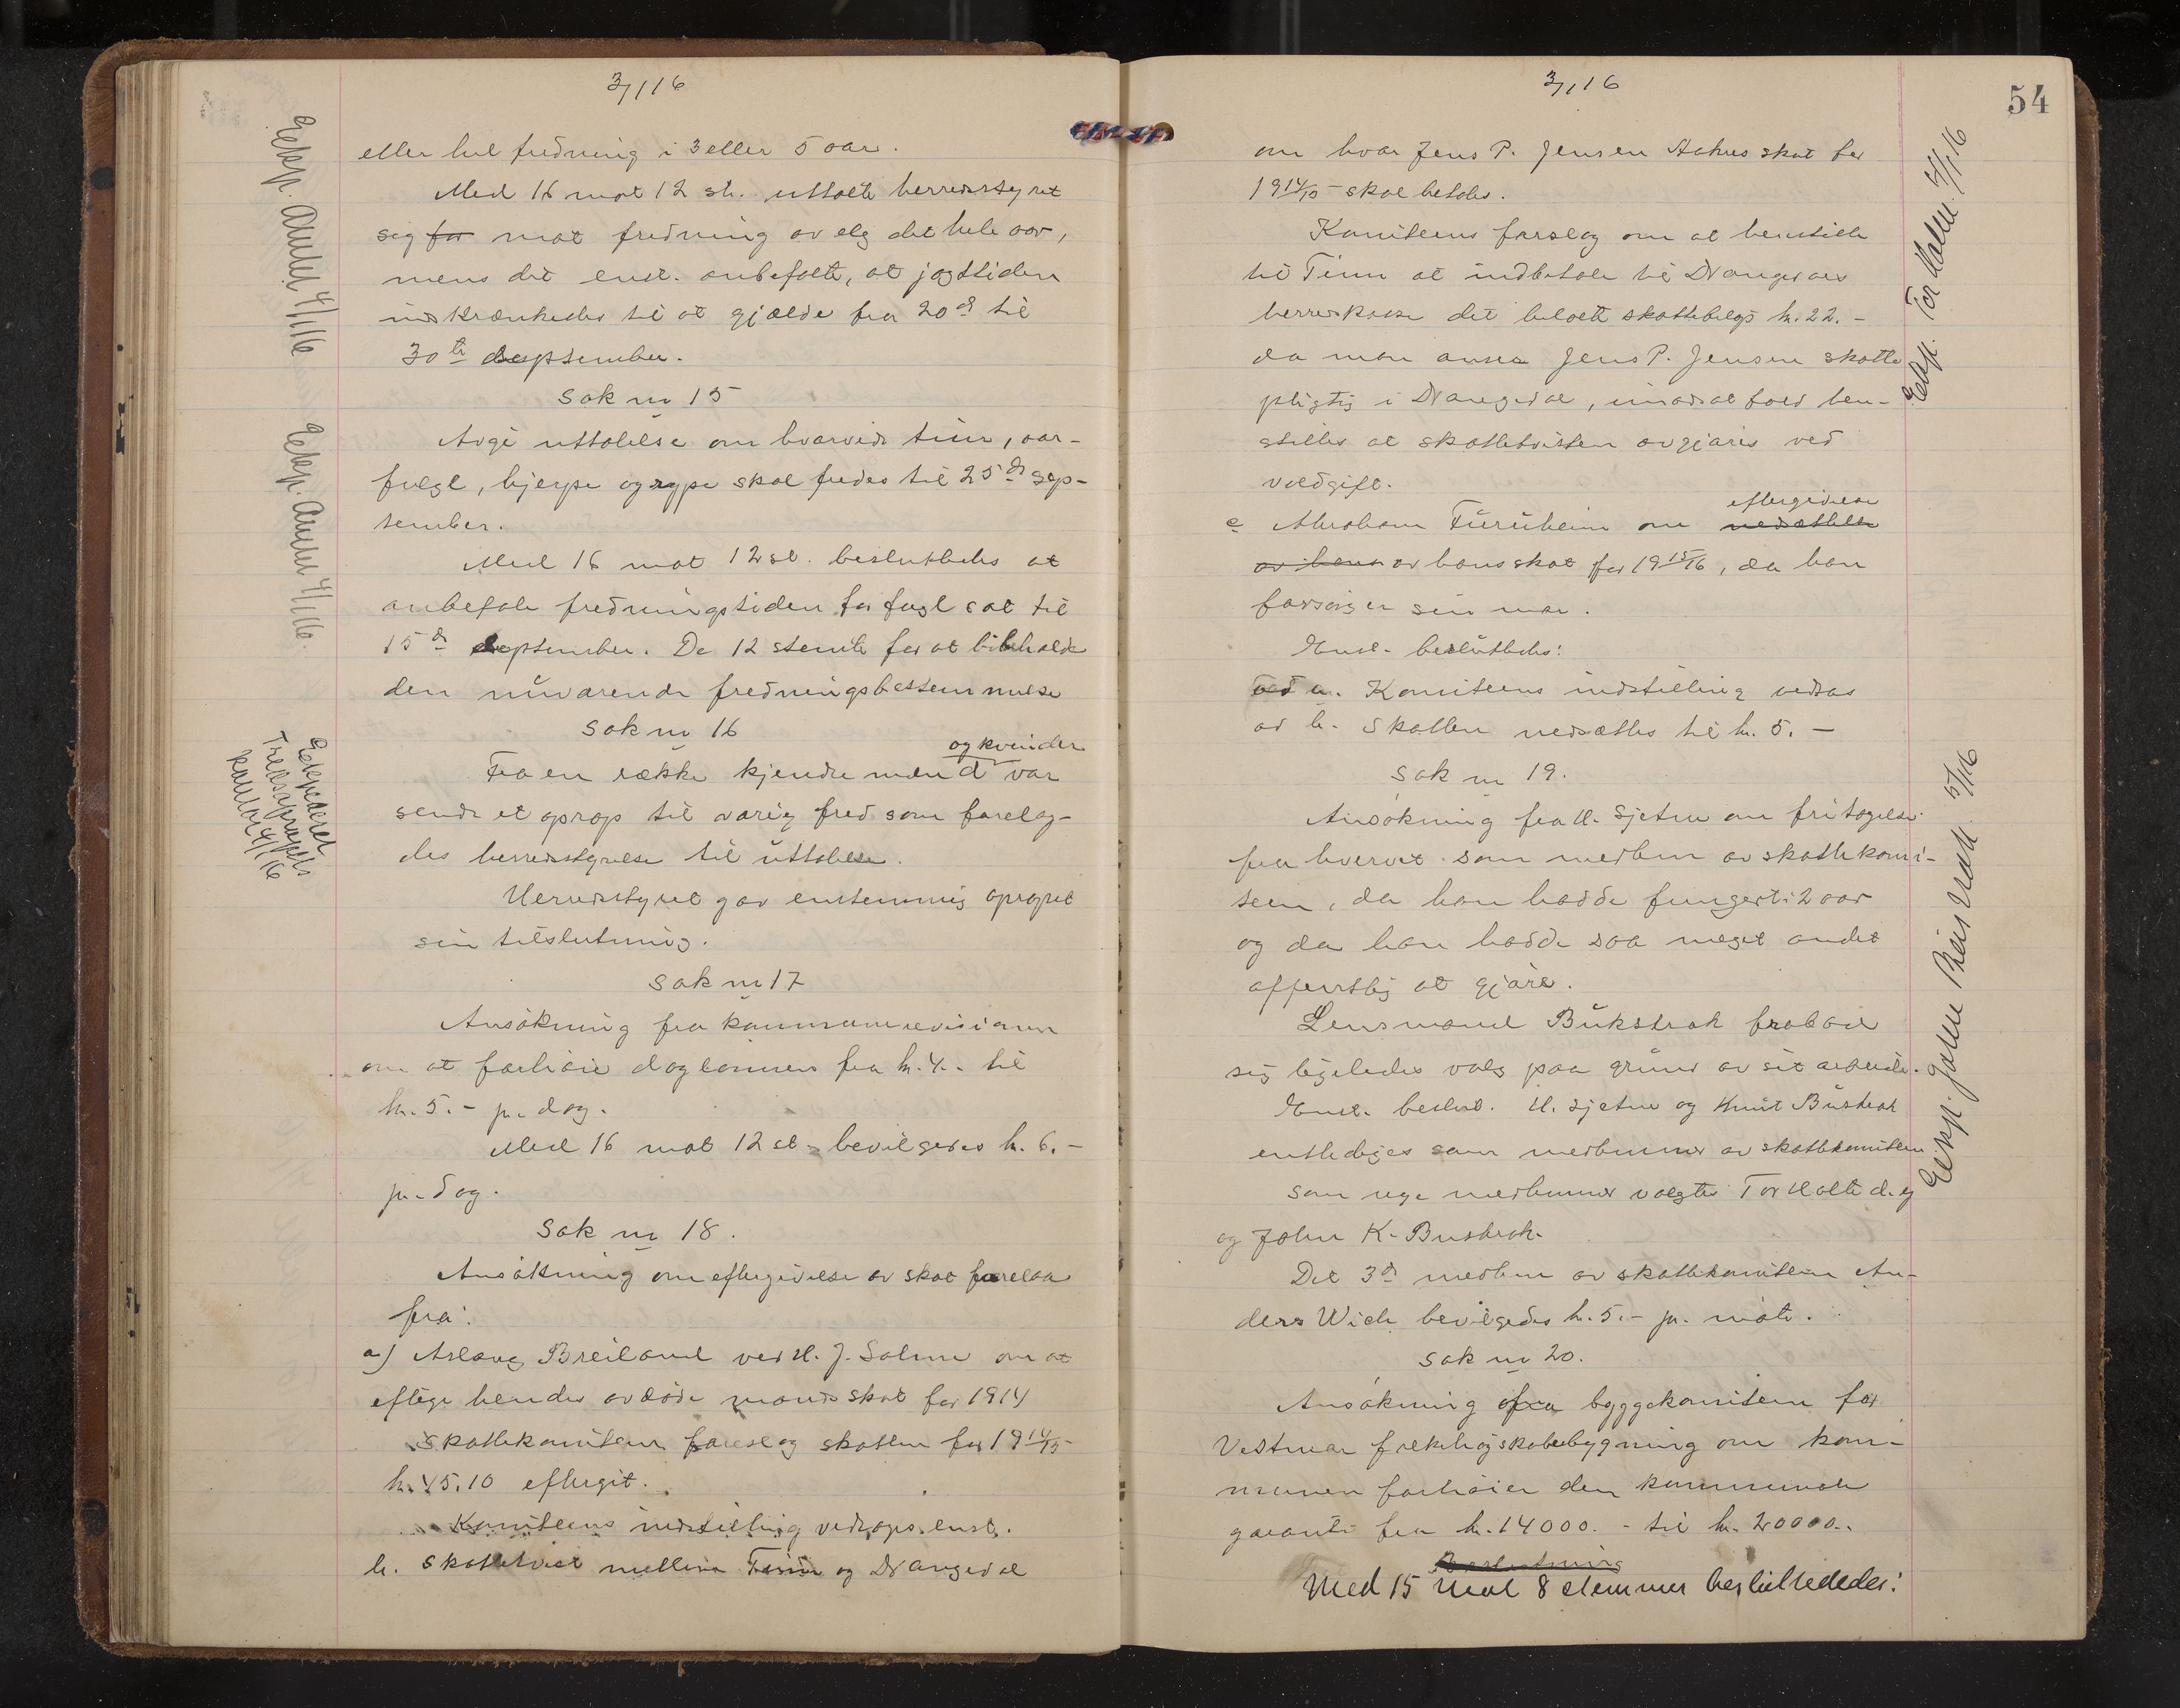 3/1 16
eller hel fredning i 3 eller 5 aar.
Med 16 mot 12 st. uttalte herredsstyret
sig for mot fredning av elg det hele aar,
mens det enst. anbefalte, at jagttiden
indskrænkedes til at gjælde fra 20de til
30te september.
Sak nr 15
Avgi uttalelse om hvorvidt tiur, aar-
fugl, hjerpe og rype skal fredes til 25de sep-
tember.
Med 16 mot 12 st. besluttedes at
anbefale fredningstiden for fugl sat til
15de september. De 12 stemte for at bibeholde
den nuværende fredningsbestemmelse
Sak nr 16
og kvinder
Fra en række kjendte mænd var
sendt et oprop til varig fred som forelag-
des herredsstyrelse til uttalelse.
Herredsstyret gav enstemmig opropet
sin tilslutning.
Sak nr 17
Ansøkning fra kommunerevisionen
om at forhøie daglønnen fra kr. 4.- til
kr. 5.- pr. dag.
Med 16 mot 12 st. bevilgedes kr. 6.-
pr. dag.
Sak nr 18.
Ansøkning om eftergivelse av skat forelaa
fra:
a) Aslaug Breiland ved H. J. Solum om at
eftergi hendes avdøde mands skat for 1914
Skattekomiteen foreslog skatten for 1914/15
kr. 45.10 eftergit.
Komiteens indstilling vedtoges enst.
b. Skattetvist mellem Tinn og Drangedal
Ekp. Amtet 4/1 16
Ekp. Amtet 4/1 16.
Ekspederet
Fredsopropets
kontor 4/1 16
54
3/1 16
om hvor Jens P. Jensen Aahus skat for
1914/15 skal betales.
Komiteens forslag om at henstille
til Tinn at indbetale til Drangedal
herredskasse det beløb skattebeløp kr. 22.-
da man anser Jens P. Jensen skatte
pligtig i Drangedal, i motsat fald hen-
stilles at skattetvisten avgjøres ved
voldgift.
eftergivelse
c Abraham Furuheim om nedsættelse
av hans av hans skat for 1915/16, da han
forsørger sin mor.
Enst. besluttedes:
ad a. Komiteens indstilling vedtas
ad b. Skatten nedsættes til kr. 5.-
Sak nr 19.
Ansøkning fra H. Sjetne om fritagelse
fra hvervet som medlem av skattekomi-
teen, da han hadde fungert i 2 aar
og da han hadde saa meget andet
offentlig at gjøre.
Lensmand Bukstrak frabad
sig likeledes valg paa grund av sit arbeide.
Enst. beslut. H. Sjetne og Knut Bustrak
entlediges som medlemmer av skattekomiteen
som nye medlemmer valgtes Tor Holte d. y
og John K. Bustrak.
Det 3de medlem av skattekomiteen An-
ders Wich bevilgedes kr. 5.- pr. møte.
Sak nr 20.
Ansøkning fra byggekomiteen for
Vestmar folkehøiskolebygning om kom-
munen forhøier den kommunale
garanti fra kr. 14000.- til kr. 20000.-
Beslutning
Med 15 mot 8 stemmer besluttedes:
Ekp. Tor Holte 4/1 16
Ekp. John 5/1 16